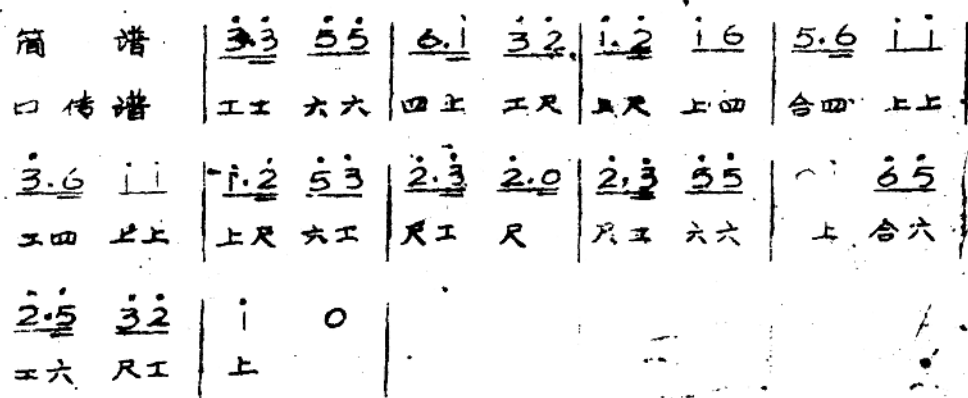 简 谱 | 3.3 5 5 | 6.i 3 2 | i.2 i 6 | 5.6 i i |
口传谱 | 工工 六六 | 四上 工尺 | 上尺 上四 | 合四 上上 |
3.6 i i | i.2 5 3 | 2.3 2.0 | 2.3 5 5 | i 6 5 |
工四 上上 | 上尺 六工 | 尺工 尺 | 尺工 六六 | 上 合六 |
2.5 3 2 | i 0 |
工六 尺工 | 上 |